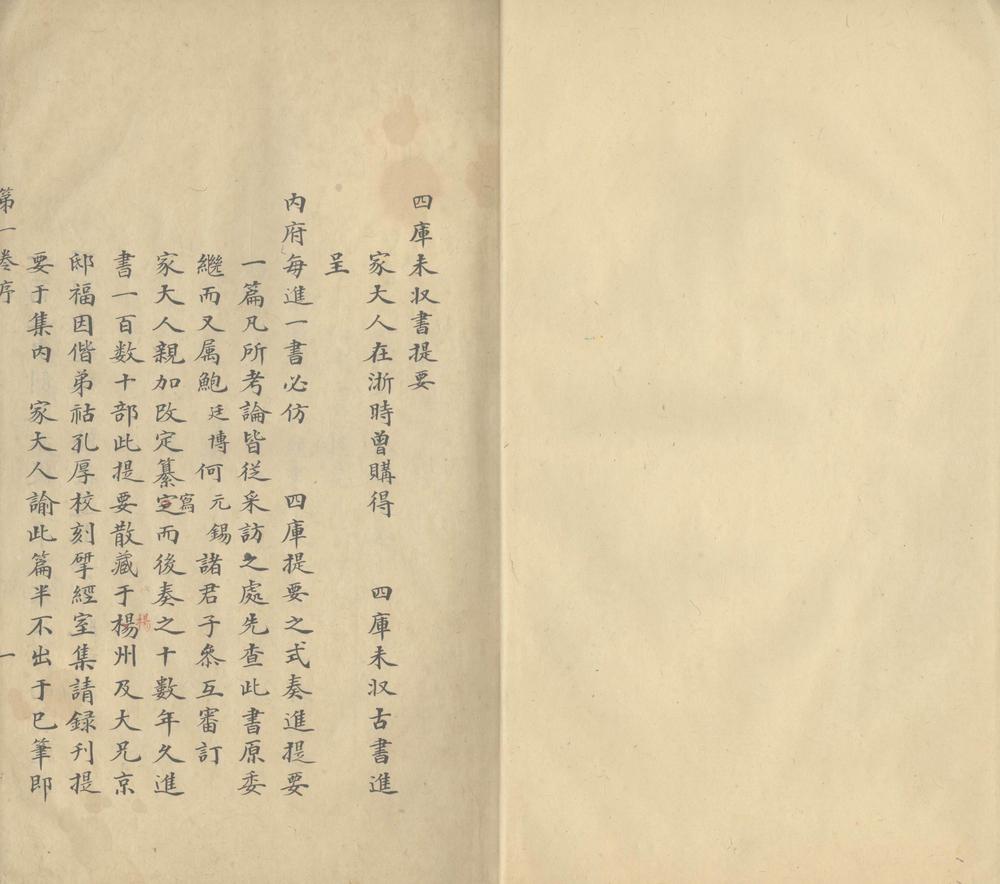 四庫未收書提要
家大人在浙時曾購得　四庫未収古書進
呈
內府每進一書必仿　四庫提要之式奏進提要
一篇凡所考論皆從采訪之處先查此書原委
繼而又属鮑廷博何元錫諸君子叅互審訂
家大人親加改定纂定寫而後奏之十數年久進
書一百数十部此提要散藏于楊揚州及大兄京
邸福因偕弟祜孔厚校刻揅經室集請録刊提
要于集內　家大人諭此篇半不出于已筆即
第一巻序　一